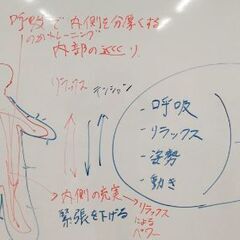 呼吸で内側を分厚くする
のがトレーニング
内部の
リラックス テンション
・呼吸
・リラックス
・姿勢
・動き
→内側の充実
緊張を下げる
→リラックス
による
パワー